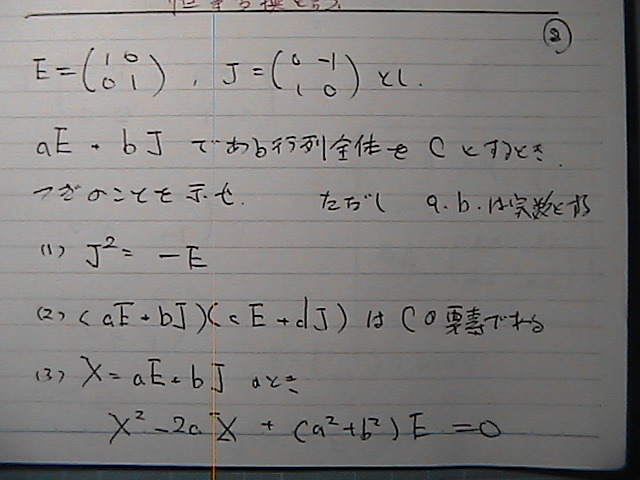 ②
E = (1 0 / 0 1), J = (0 -1 / 1 0) とし.
aE + bJ である行列全体を C とするとき.
つぎのことを示せ. ただし a.b.は実数とする
(1) J² = -E
(2) (aE+bJ)(cE+dJ) は Cの要素である
(3) X = aE+bJ のとき
X² - 2aX + (a²+b²)E = 0